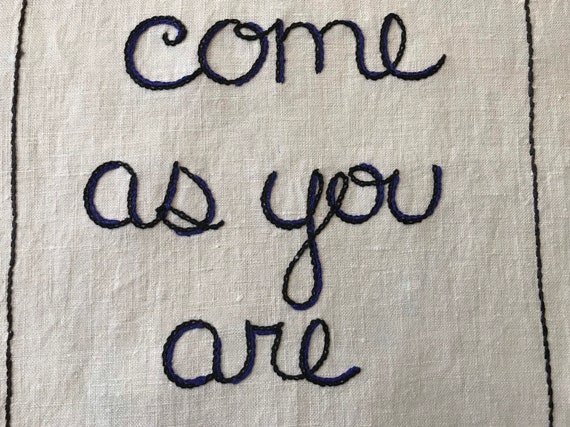 come
as you
are